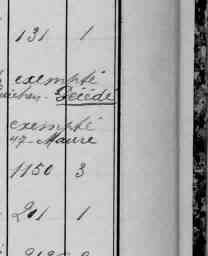 131 1
exempté
Décédé
exempté
1150 3
201 1